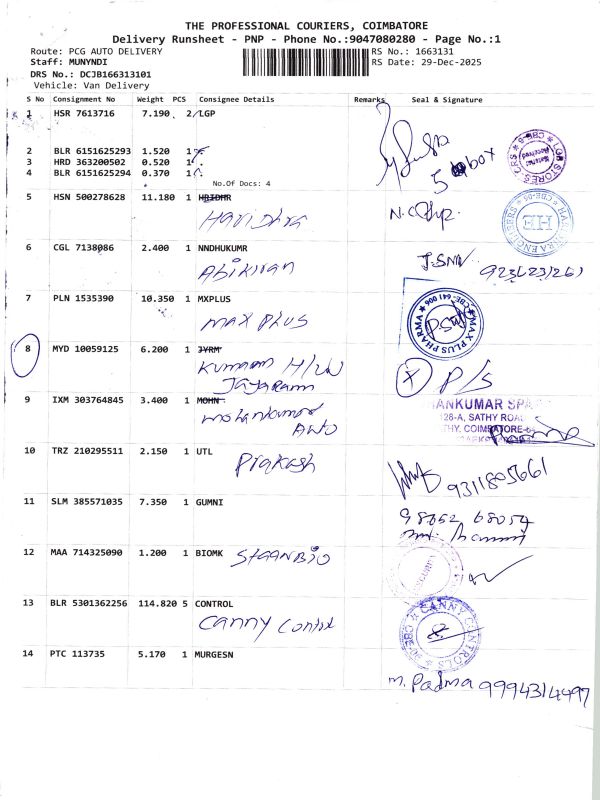 THE PROFESSIONAL COURIERS, COIMBATORE
Delivery Runsheet - PNP - Phone No.:9047080280 - Page No.:1
Route: PCG AUTO DELIVERY
RS No.: 1663131
Staff: MUNYNDI
RS Date: 29-Dec-2025
DRS No.: DCJB166313101
Vehicle: Van Delivery
S No Consignment No Weight PCS Consignee Details Remarks Seal & Signature
1 HSR 7613716 7.190 2 LGP
2 BLR 6151625293 1.520 1
3 HRD 363200502 0.520 1
4 BLR 6151625294 0.370 1
5 box
No.Of Docs: 4
LGB STORES
5 HSN 500278628 11.180 1
Haridhra
HE
6 CGL 7138086 2.400 1 NNDHUKUMR
Abikiran
9236231261
7 PLN 1535390 10.350 1 MXPLUS
MAX PLUS
MAX PLUS PHARMA CBE-641 006
8 MYD 10059125 6.200 1 JYRM
Kumaran H/W
Jayaram
X P/S
9 IXM 303764845 3.400 1 MOHN
Mohankumar
Auto
ANKUMAR SPA
128-A, SATHY ROAD
10 TRZ 210295511 2.150 1 UTL
Prakash
9311805661
11 SLM 385571035 7.350 1 GUMNI
98652 68054
12 MAA 714325090 1.200 1 BIOMK
StaanBio
13 BLR 5301362256 114.820 5 CONTROL
Canny Control
CANNY CONTROLS
14 PTC 113735 5.170 1 MURGESN
M. Padma 9994314497